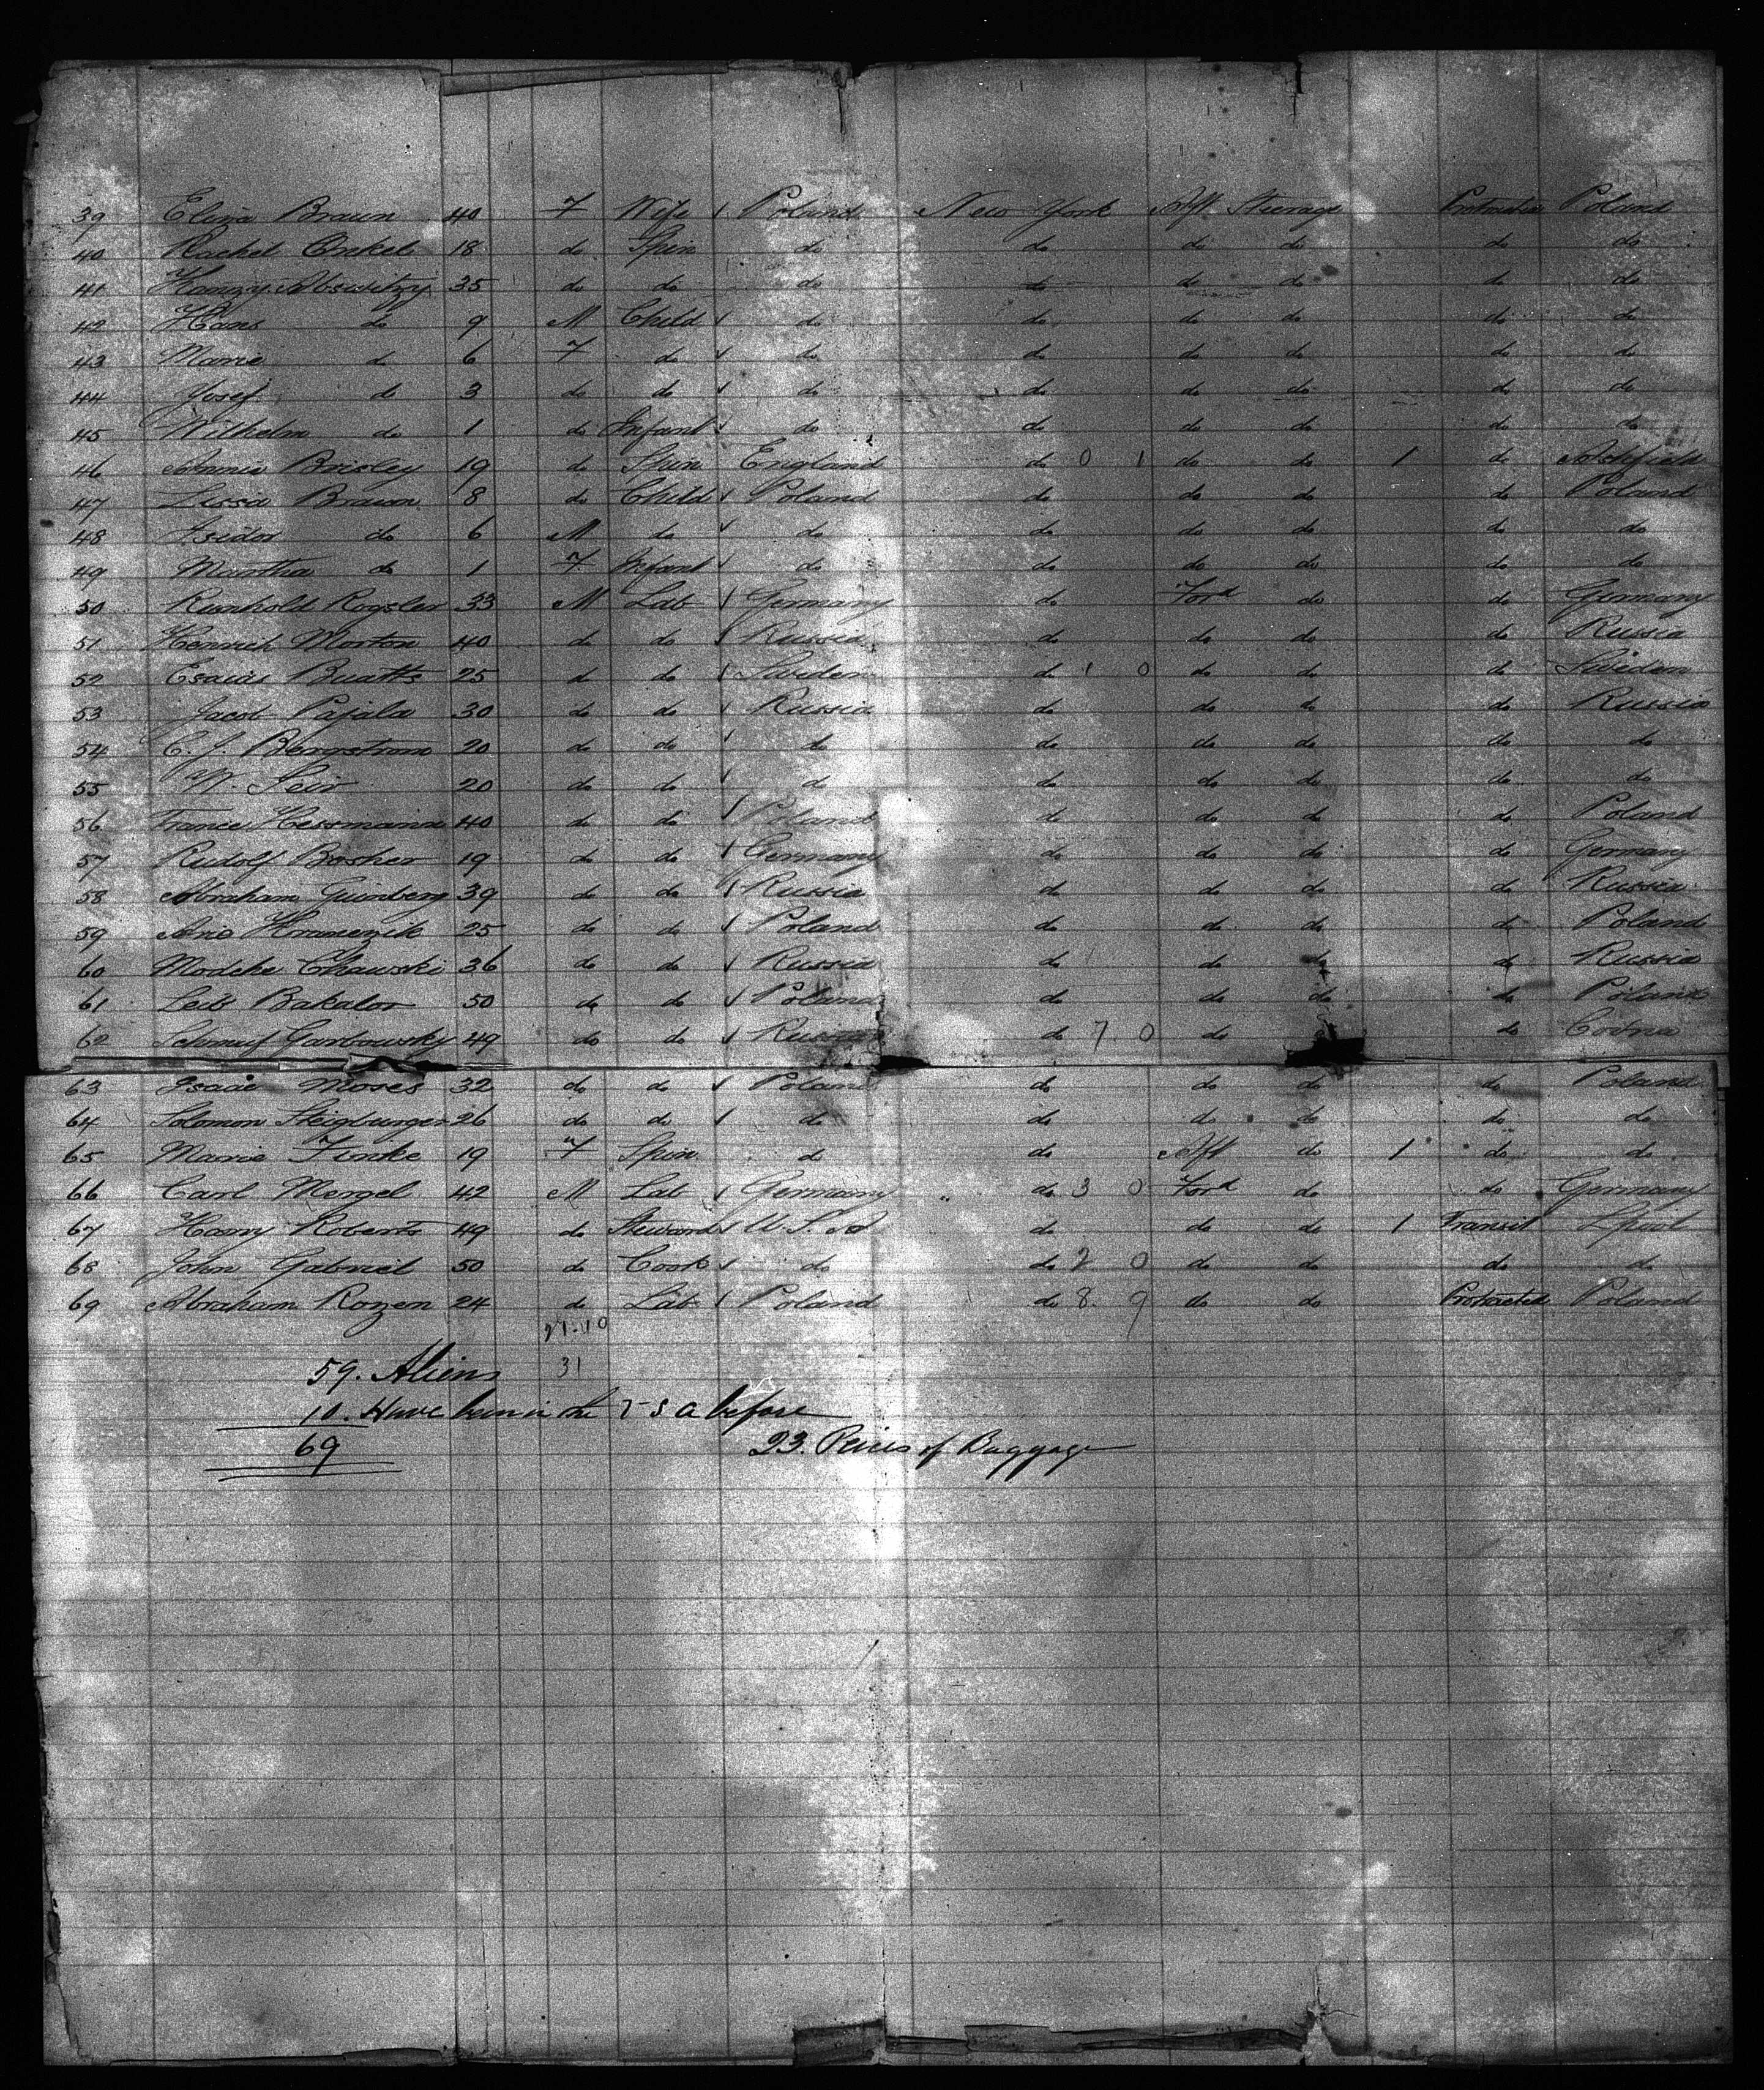 39 Eliza Braun 40 F Wife Poland New York Aft Steerage Protracted Poland
40 Rachel Onkel 18 do Spin do do do do do do
41 35 do do do do do do do do
42 Hans do 9 M Child do do do do do do
43 Marie do 6 F do do do do do do do
44 Josef do 3 do do do do do do do do
45 Wilhelm do 1 do Infant do do do do do do
46 Annie Brisley 19 do Spin England do 0 1 do do 1 do
47 Lissa Braun 8 do Child Poland do do do do Poland
48 Isidor do 6 M do do do do do do do
49 Martha do 1 F Infant do do do do do do
50 Reinhold Rogsler 33 M Lab Germany do Ford do do Germany
51 Henrich Morton 40 do do Russia do do do do Russia
52 Esaias Buatts 25 do do Sweden do 1 0 do do do Sweden
53 Jacob Pajala 30 do do Russia do do do do Russia
54 C. J. Bergstrom 20 do do do do do do do do
55 W. Seir 20 do do do do do do do do
56 Hessmann 40 do do Poland do do do do Poland
57 Rudolf Bosher 19 do do Germany do do do do Germany
58 Abraham Guinberg 39 do do Russia do do do do Russia
59 25 do do Poland do do do do Poland
60 Modche Chawski 36 do do Russia do do do do Russia
61 Leib Bakalor 50 do do Poland do do do do Poland
62 Garbowsky 49 do do Russia do 7 0 do do
63 Isaac Moses 32 do do Poland do do do do Poland
64 Solomon Steigburger 26 do do do do do do do do
65 Marie Finke 19 F Spin do do Aft do 1 do do
66 Carl Mergel 42 M Lab Germany do 3 0 Ford do do Germany
67 Harry Roberts 49 do Steward U.S.A do do do 1 Transit Lpool
68 John Gabriel 50 do Cook do do 2 0 do do do do
69 Abraham Rozen 24 do Lab Poland do 8. 9 do do Protracted Poland
21.10
59. Aliens 31
10. Have been in the U S A before
69 23. Peices of Baggage